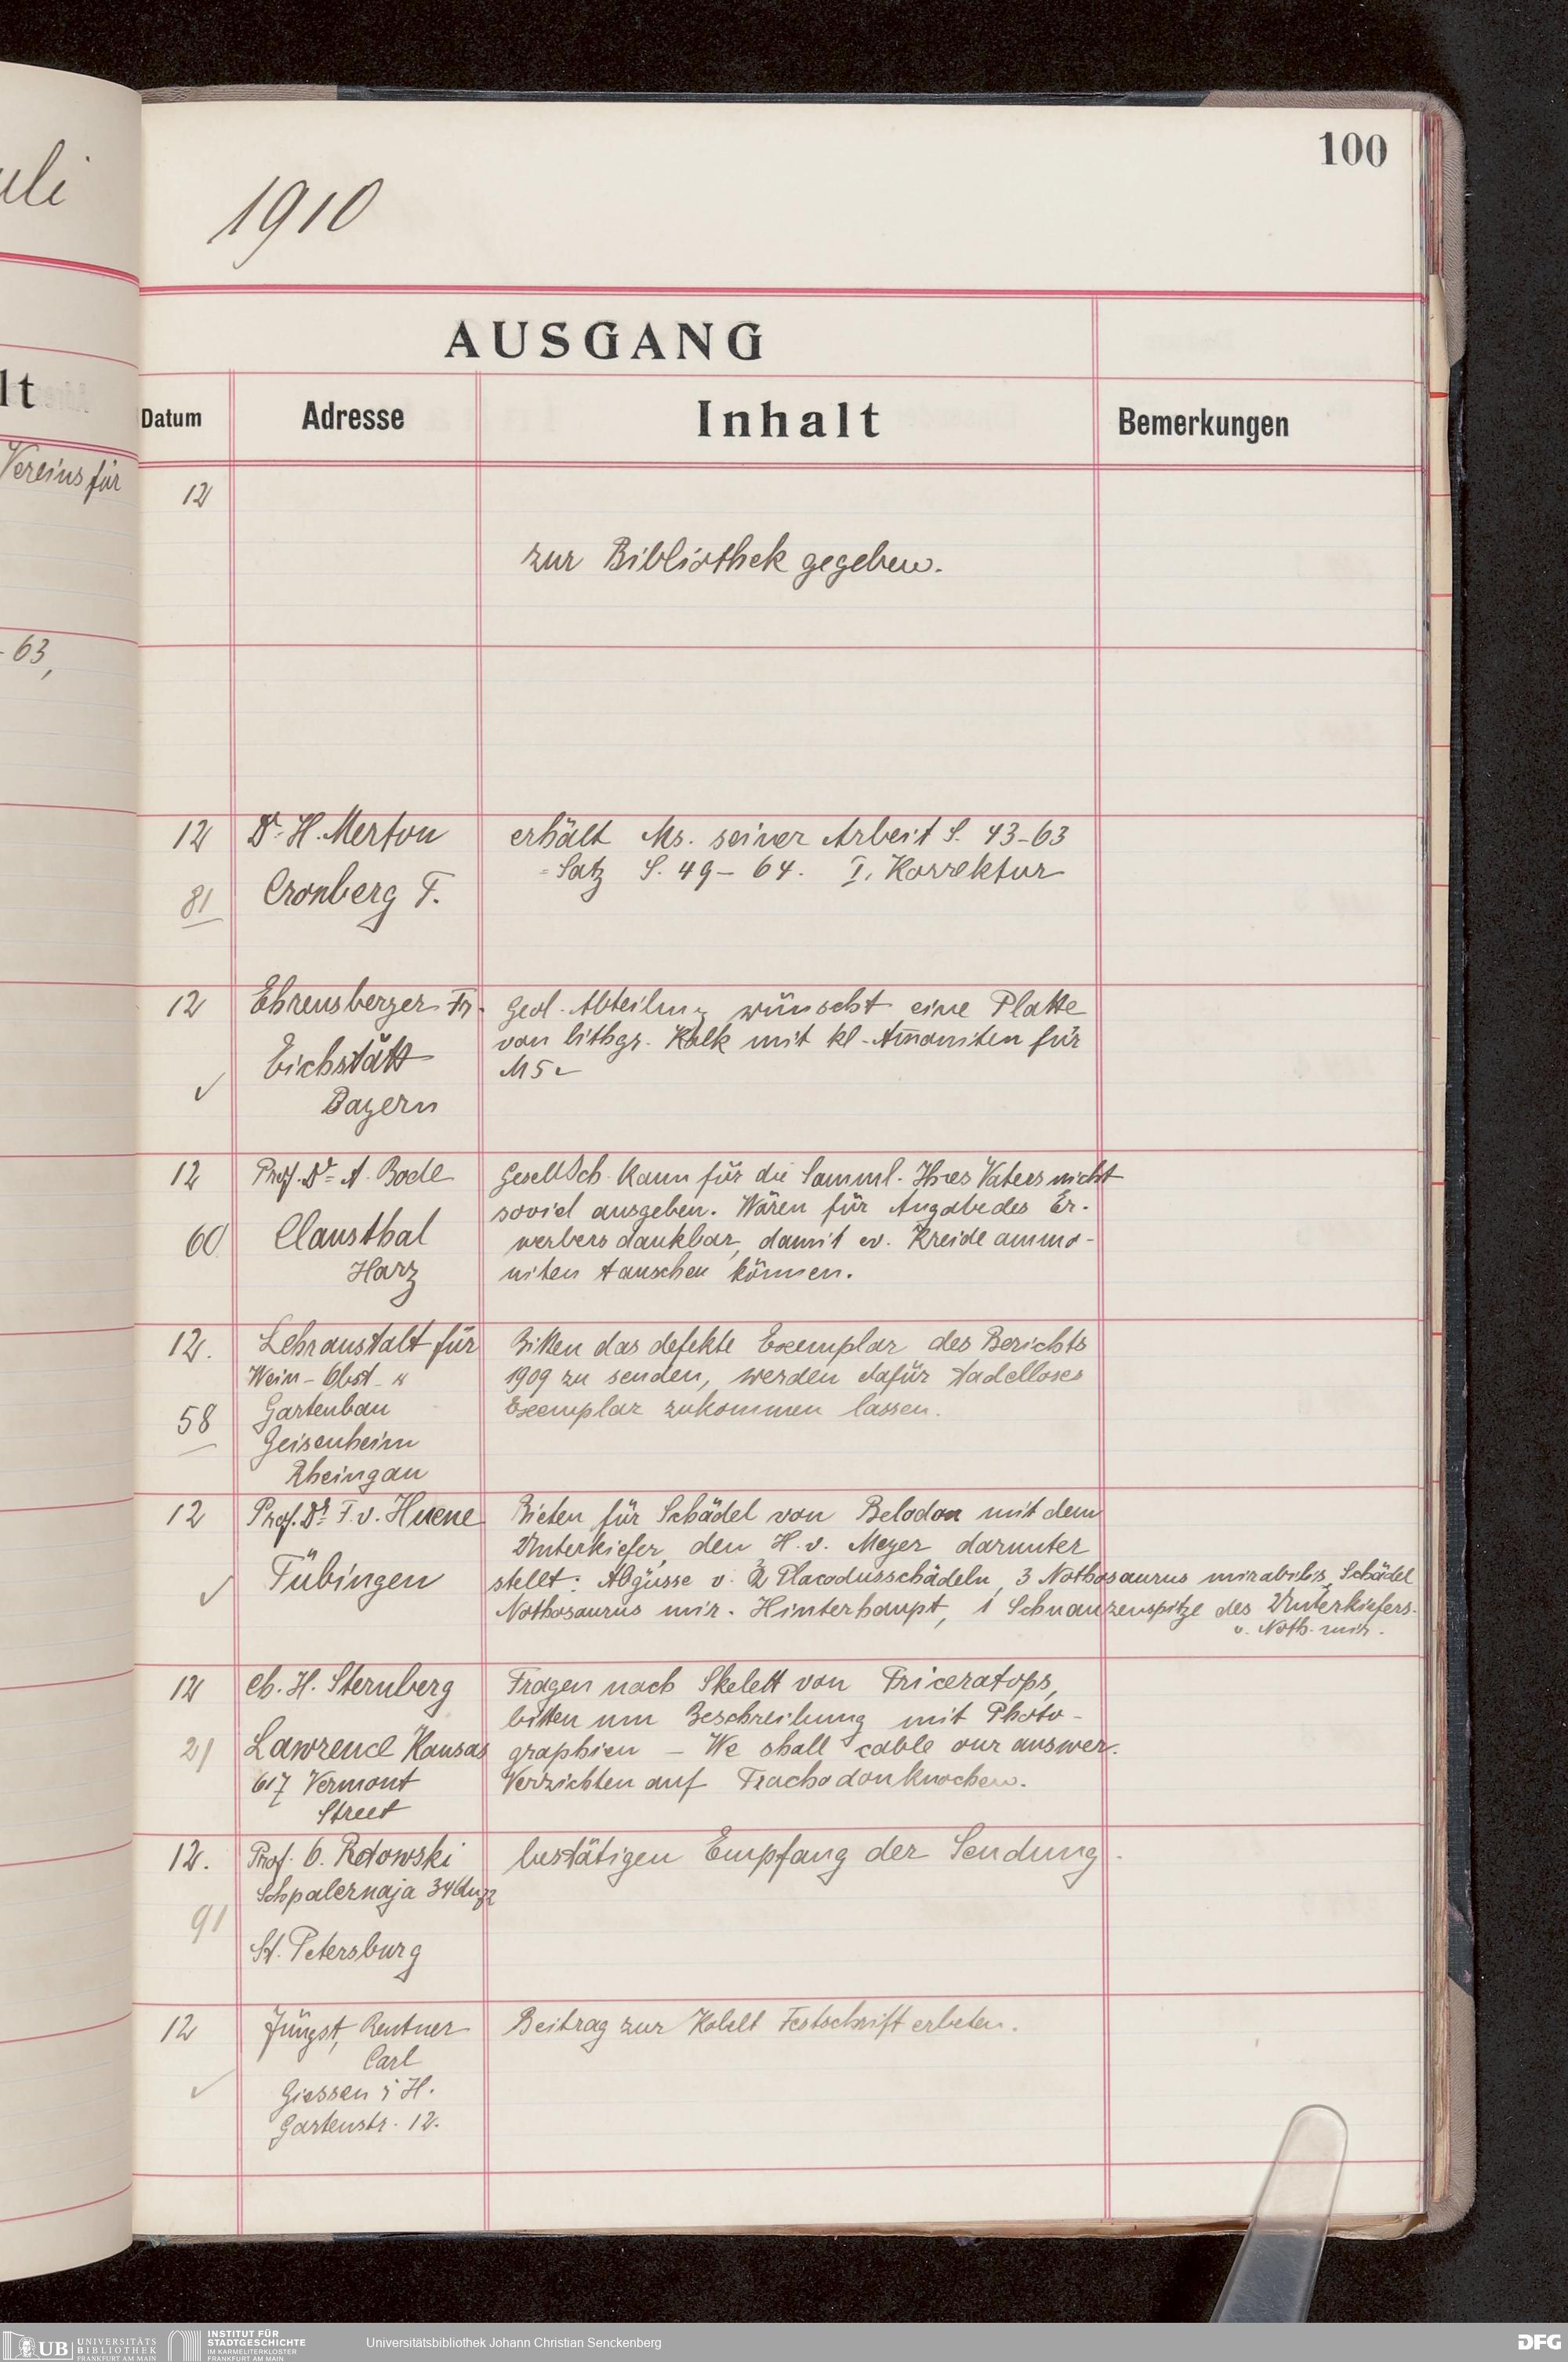 uli
lt
Vereins für
- 63,
100
1910
AUSGANG
Datum Adresse Inhalt Bemerkungen
12
zur Bibliothek gegeben.
12 Dr. H. Merton erhält Ms. seiner Arbeit S. 43-63
= Satz S. 49 - 64. I. Korrektur
81 Cronberg T.
12 Ehrensberger Fr. Geol. Abteilung wünscht eine Platte
von lithgr. Kalk mit kl. Am̅oniten für
Eichstätt M 5.-
✓ Bayern
12 Prof. Dr. A. Bode Gesellsch. kann für die Samml. Ihres Vaters nicht
soviel ausgeben. Wären für Angabe des Er-
60 Clausthal werbers dankbar, damit ev. Kreideammo-
Harz niten tauschen können.
12. Lehranstalt für Bitten das defekte Exemplar des Berichts
Wein- Obst- u 1909 zu senden, werden dafür tadelloses
58 Gartenbau Exemplar zukommen lassen.
Geisenheim
Rheingau
12 Prof. Dr. F. v. Huene Bieten für Schädel von Belodon mit dem
Unterkiefer, den H. v. Meyer darunter
✓ Tübingen stellt: Abgüsse v. 2 Placodusschädeln, 3 Nothosaurus mirabilis, Schädel
Nothosaurus mir. Hinterhaupt, 1 Schnauzenspitze des Unterkiefers.
v. Noth. mir.
12 Ch. H. Sternberg Fragen nach Skelett von Triceratops,
bitten um Beschreibung mit Photo-
21 Lawrence Kansas graphien - We shall cable our answer.
617 Vermont Verzichten auf Trachodonknochen.
Street
12. Prof. O. Retowski bestätigen Empfang der Sendung.
Schpalernaja 34
91
St. Petersburg
12 Jüngst, Rentner Beitrag zur Kobelt Festschrift erbeten.
Carl
✓ Giessen i H.
Gartenstr. 12.
UB UNIVERSITÄTS
BIBLIOTHEK
FRANKFURT AM MAIN
INSTITUT FÜR
STADTGESCHICHTE
IM KARMELITERKLOSTER
FRANKFURT AM MAIN
Universitätsbibliothek Johann Christian Senckenberg
DFG